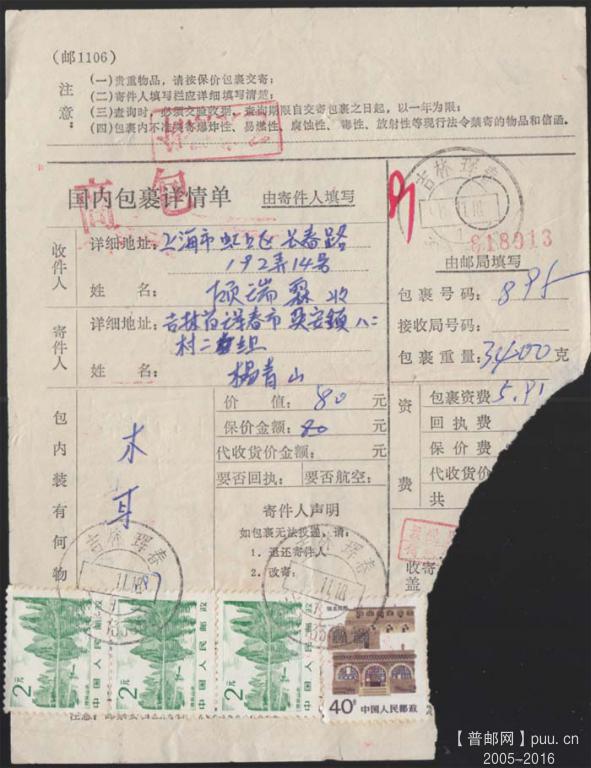 (邮1106)
注意:
(一)贵重物品,请按保价包裹交寄;
(二)寄件人填写栏应详细填写清楚;
(三)查询时,必须交验收据,查询期限自交寄包裹之日起,以一年为限;
(四)包裹内不准夹寄爆炸性、易燃性、腐蚀性、毒性、放射性等现行法令禁寄的物品和信函。
国内包裹详情单 由寄件人填写
商包
吉林 珲春
11.18
618013
收件人
详细地址: 上海市虹口区长春路
192弄14号
姓名: 顾瑞霖 收
寄件人
详细地址: 吉林省珲春市 英安镇 八二
村二组
姓名: 杨青山
由邮局填写
包裹号码: 895
接收局号码:
包裹重量: 3400 克
包内装有何物
木耳
价值: 80 元
保价金额: 80 元
代收货价金额: 元
要否回执: 要否航空:
寄件人声明
如包裹无法投递,请:
1.退还寄件人
2.改寄:
资费
包裹资费 5.91
回执费
保价费
代收货价
共
收寄
盖
吉林 珲春
11.18
吉林 珲春
11.18
2元 中国人民邮政
2元 中国人民邮政
2元 中国人民邮政
40分 中国人民邮政
【普邮网】puu.cn
2005-2016